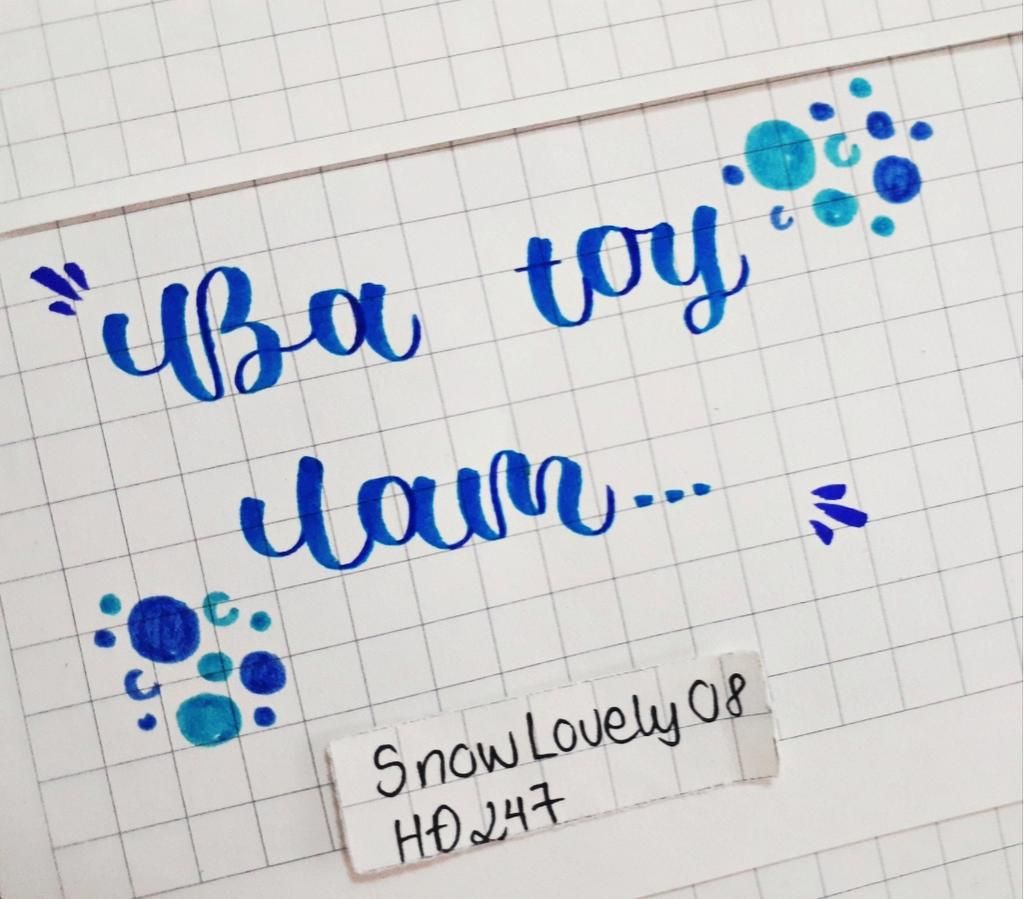 Ba toy
lam...
SnowLovely08
HĐ247